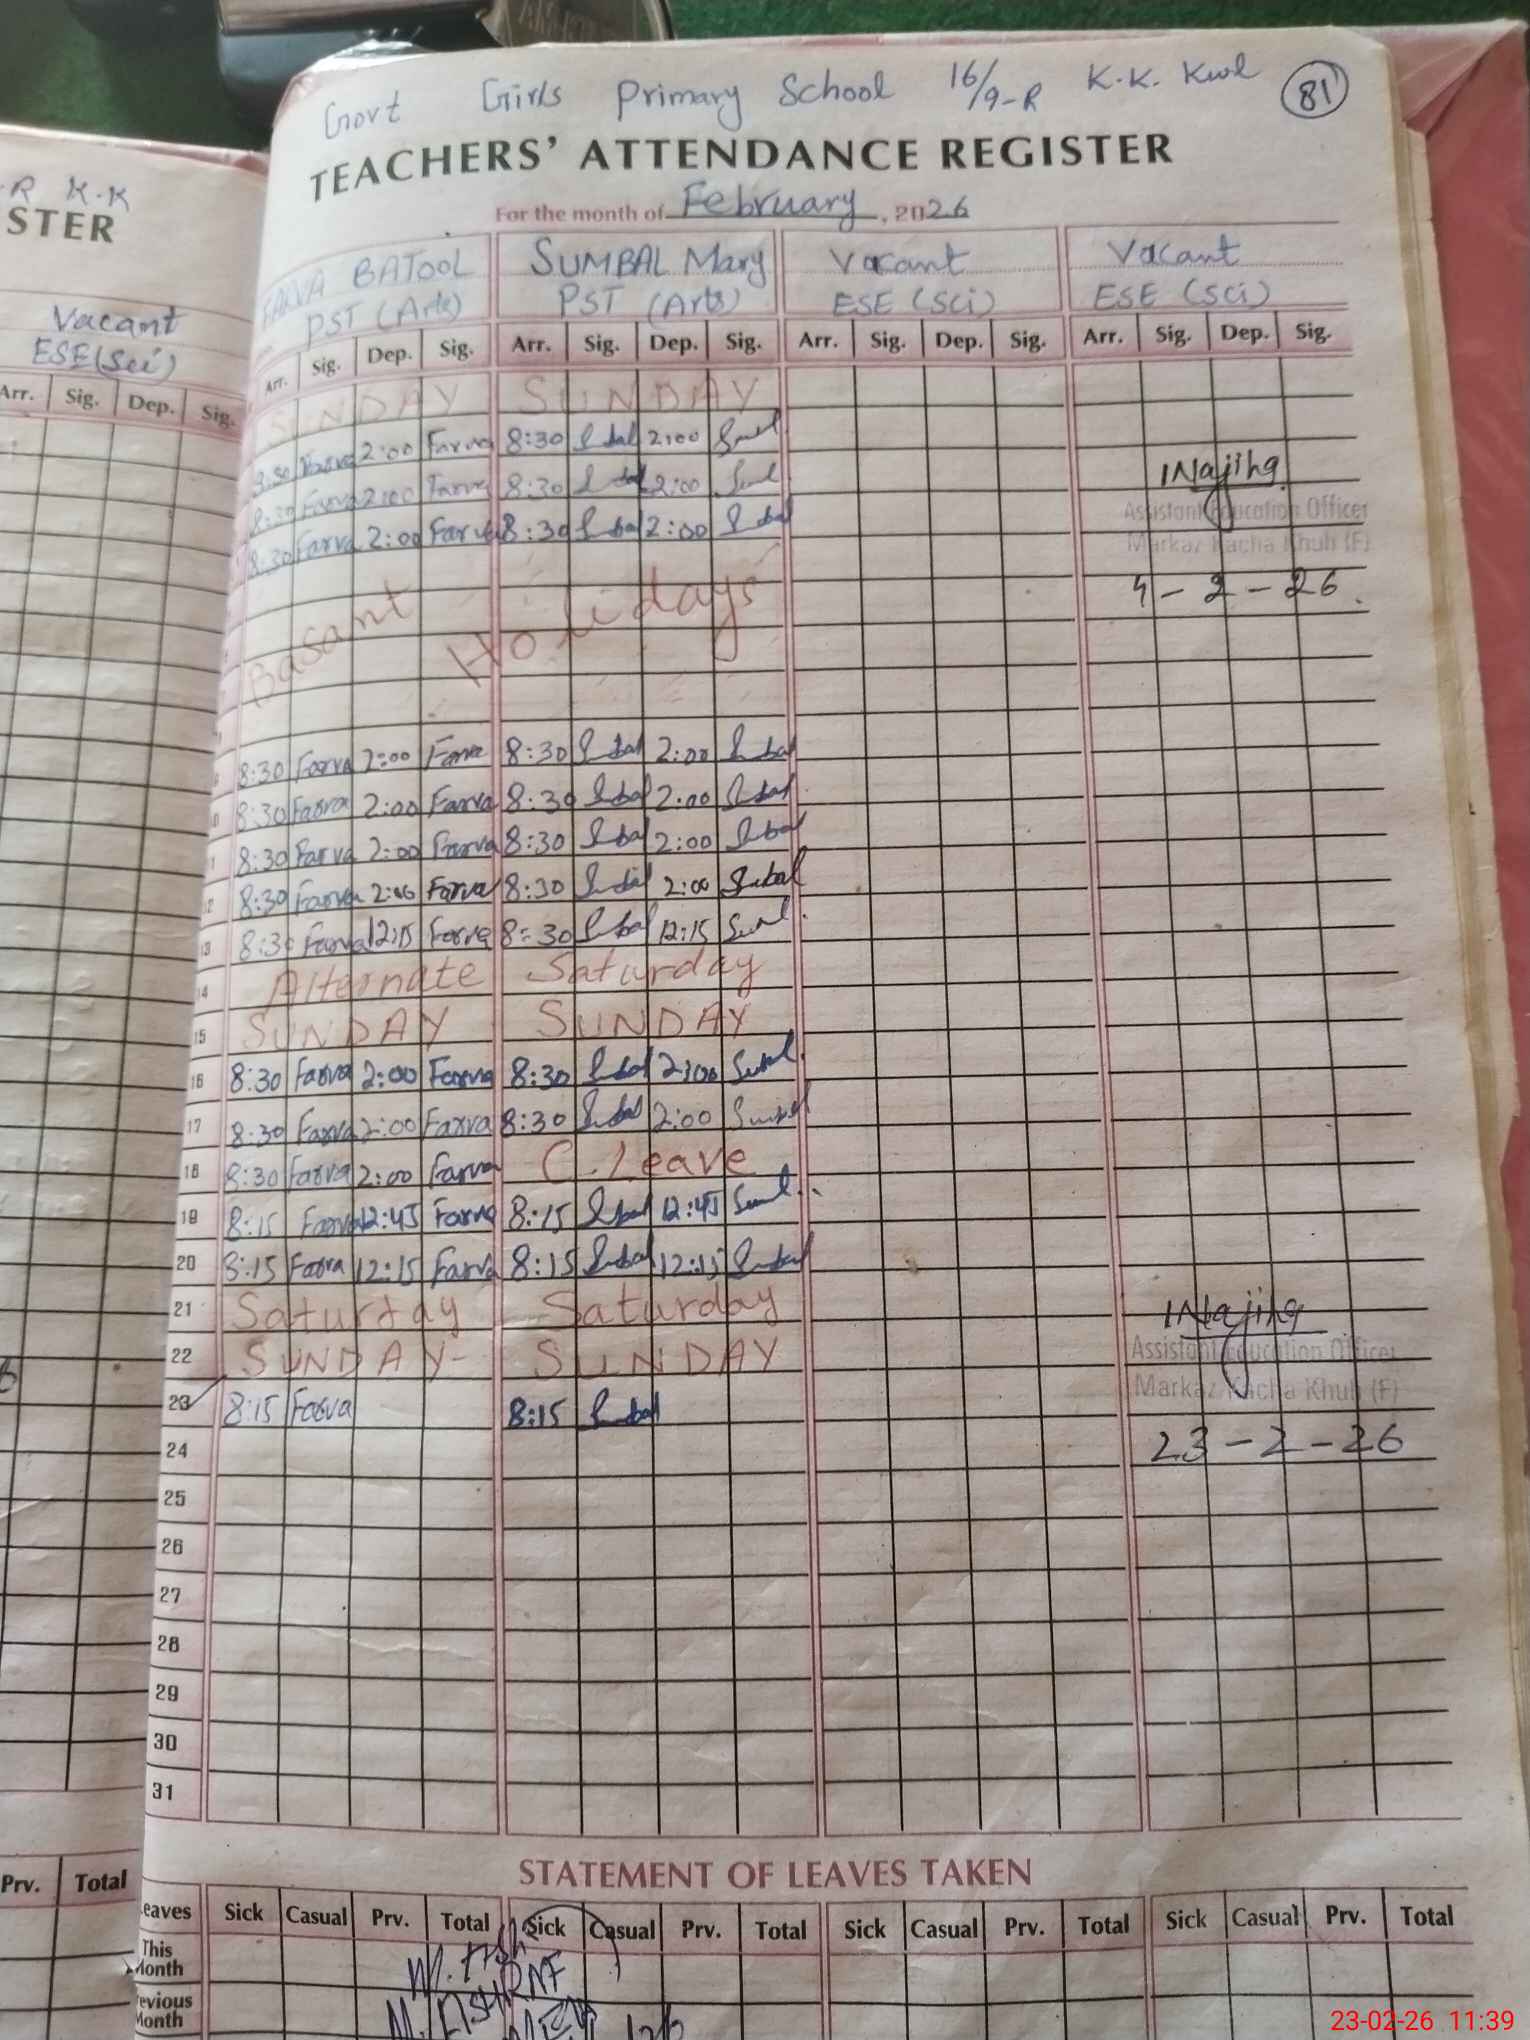 Govt Girls Primary School 16/9-R K.K. Kwl 81
TEACHERS' ATTENDANCE REGISTER
For the month of February, 2026
R K.K
STER
Vacant
ESE (Sci)
Arr. Sig. Dep. Sig.
FARVA BATOOL SUMBAL Mary Vacant Vacant
PST (Arts) PST (Arts) ESE (Sci) ESE (Sci)
Arr. Sig. Dep. Sig. Arr. Sig. Dep. Sig. Arr. Sig. Dep. Sig. Arr. Sig. Dep. Sig.
SUNDAY SUNDAY
8:30 Farva 2:00 Farva 8:30 2:00
8:30 Farva 2:00 Farva 8:30 2:00
8:30 Farva 2:00 Farva 8:30 2:00
Assistant Education Officer
Markaz Kacha Khuh (F)
4-2-26
Basant Holidays
8:30 Farva 2:00 Farva 8:30 Sumbal 2:00 Sumbal
10 8:30 Farva 2:00 Farva 8:30 Sumbal 2:00 Sumbal
11 8:30 Farva 2:00 Farva 8:30 Sumbal 2:00 Sumbal
12 8:30 Farva 2:00 Farva 8:30 Sumbal 2:00 Sumbal
13 8:30 Farva 12:15 Farva 8:30 Sumbal 12:15
14 Alternate Saturday
15 SUNDAY SUNDAY
16 8:30 Farva 2:00 Farva 8:30 Sumbal 2:00
17 8:30 Farva 2:00 Farva 8:30 Sumbal 2:00 Sumbal
18 8:30 Farva 2:00 Farva C.Leave
19 8:15 Farva 12:45 Farva 8:15 Sumbal 12:45
20 8:15 Farva 12:15 Farva 8:15 Sumbal 12:15 Sumbal
21 Saturday Saturday
22 SUNDAY SUNDAY
23 8:15 Farva 8:15 Sumbal
Assistant Education Officer
Markaz Kacha Khuh (F)
23-2-26
24
25
26
27
28
29
30
31
STATEMENT OF LEAVES TAKEN
Prv. Total
eaves Sick Casual Prv. Total Sick Casual Prv. Total Sick Casual Prv. Total Sick Casual Prv. Total
This Month
evious Month
23-02-26 11:39